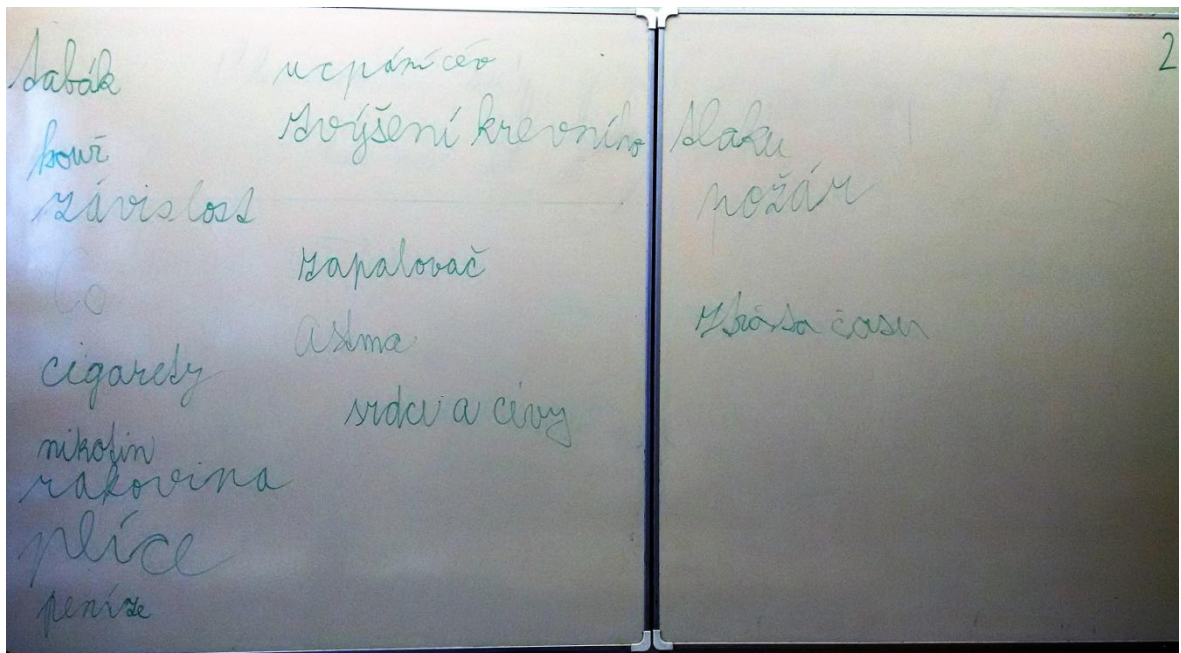 tabák
kouř
závislost
Co
cigarety
nikotin
rakovina
plíce
peníze
ucpání cév
zvýšení krevního tlaku
zapalovač
astma
srdce a cévy
2
požár
ztráta času